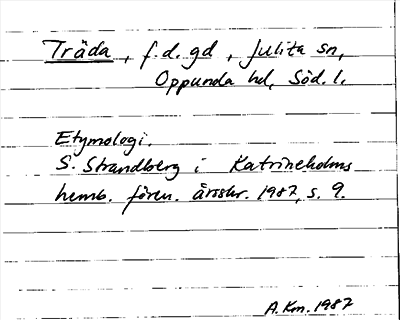 Träda, f.d. gd, Julita sn,
Oppunda hd, Söd. l.
Etymologi.
S. Strandberg i Katrineholms
hemb. fören. årsskr. 1987, s. 9.
A.Km. 1987